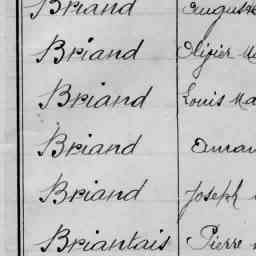 Briand Auguste
Briand Olivier
Briand Louis Ma
Briand
Briand Joseph
Briantais Pierre